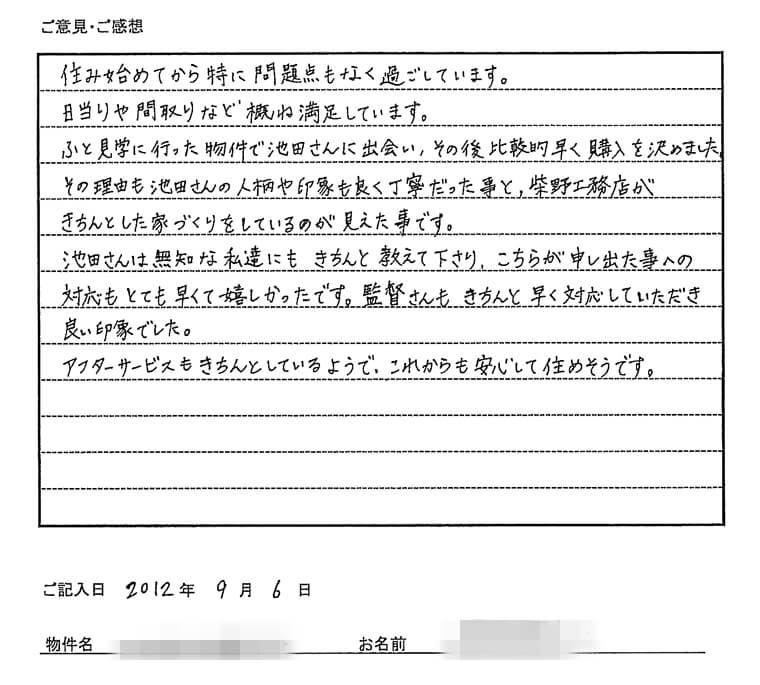 ご意見・ご感想
住み始めてから特に問題点もなく過ごしています。
日当りや間取りなど概ね満足しています。
ふと見学に行った物件で池田さんに出会い、その後比較的早く購入を決めました。
その理由も池田さんの人柄や印象も良く丁寧だった事と、柴野工務店が
きちんとした家づくりをしているのが見えた事です。
池田さんは無知な私達にもきちんと教えて下さり、こちらが申し出た事への
対応もとても早くて嬉しかったです。監督さんもきちんと早く対応していただき
良い印象でした。
アフターサービスもきちんとしているようで、これからも安心して住めそうです。
ご記入日 2012年 9月 6日
物件名 お名前